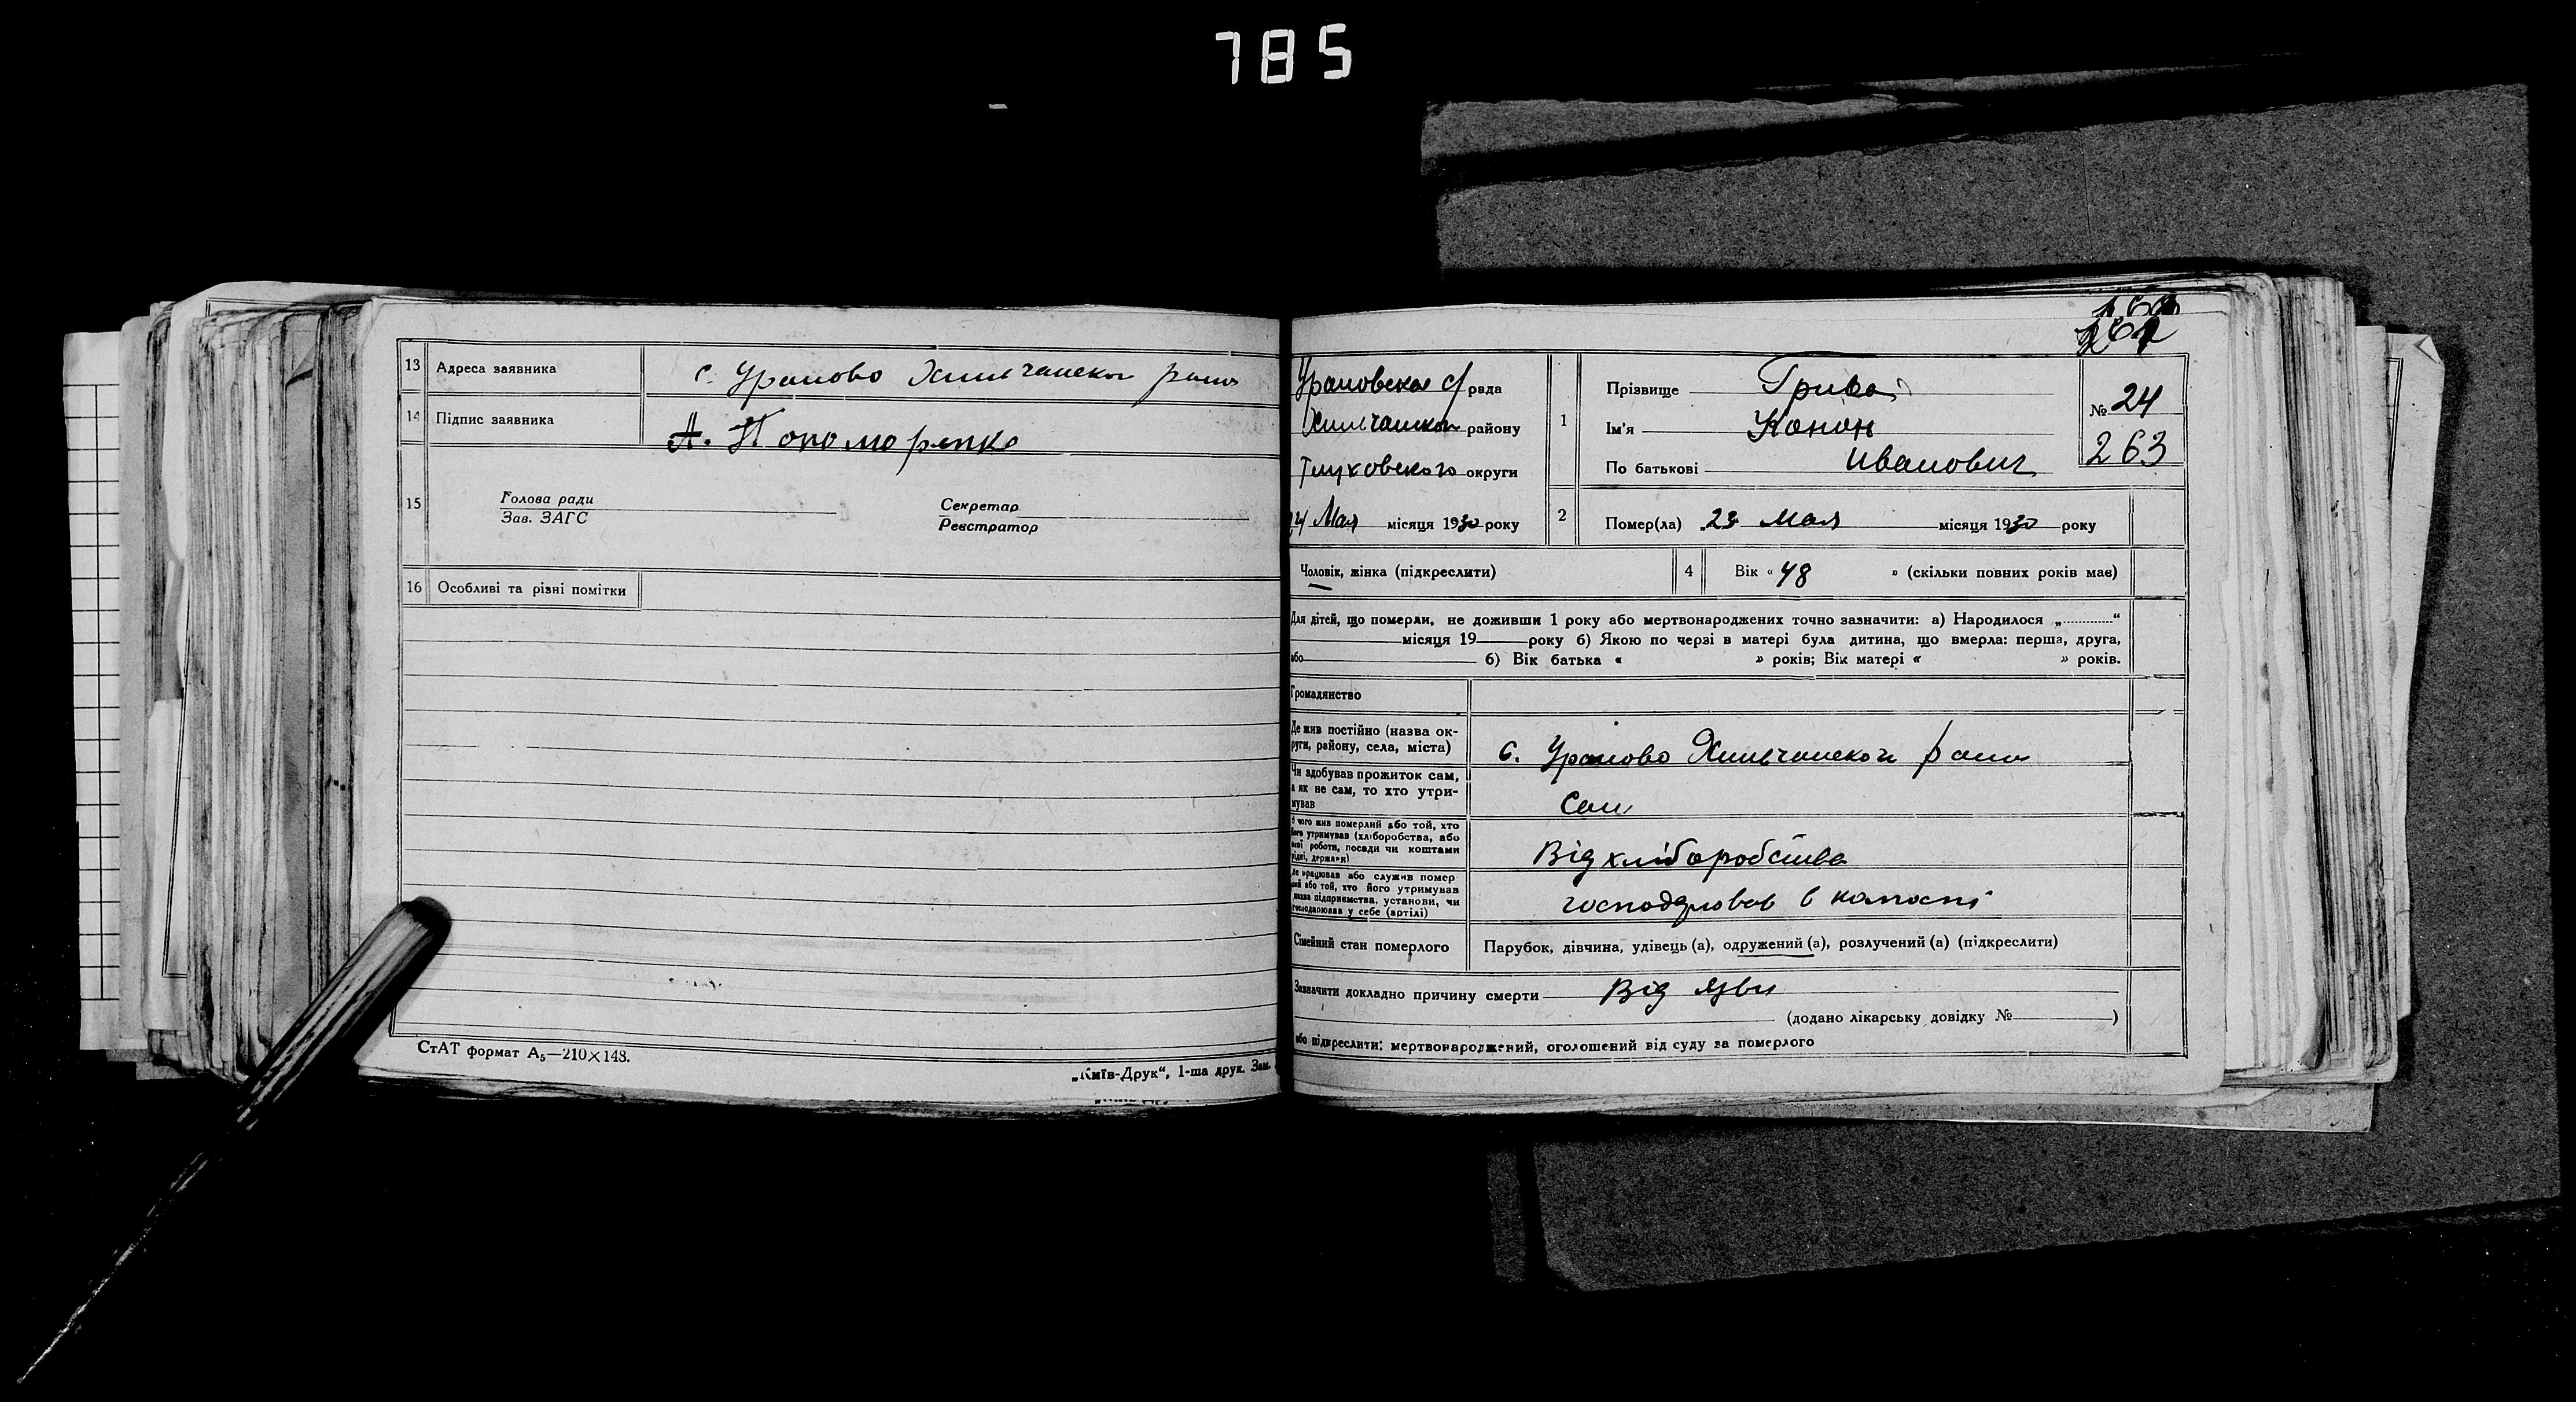 785
13 Адреса заявника с. Уралово Хильчанског району
14 Підпис заявника А. Пономоренко
15 Голова ради
Зав. ЗАГС
Секретар
Реєстратор
16 Особливі та різні помітки
СтАТ формат А₅—210×148.
„Київ-Друк“, 1-ша друк. Зам.
Ураловская с/рада
району
Глуховского округи
24 Мая місяця 1930 року
1 Прізвище Грива
Ім'я Конон
По батькові Иванович
№ 24
263
2 Помер(ла) 23 мая місяця 1930 року
Чоловік, жінка (підкреслити)
4 Вік « 48 » (скільки повних років має)
Для дітей, що померли, не доживши 1 року або мертвонароджених точно зазначити: а) Народилося „............“
місяця 19 року б) Якою по черзі в матері була дитина, що вмерла: перша, друга,
або б) Вік батька « » років; Вік матері « » років.
Громадянство
Де жив постійно (назва ок-
руги, району, села, міста) с. Уралово Хильчанског району
Чи здобував прожиток сам,
а як не сам, то хто утри-
мував Сам
З чого жив померлий або той, хто
його утримував (хліборобства, або
роботи, посади чи коштами
держави) Від хліборобства
Де працював або служив помер
або той, хто його утримував
назва підприємства, установи, чи
господарював у себе (артілі) господаровав в
Сімейний стан померлого Парубок, дівчина, удівець (а), одружений (а), розлучений (а) (підкреслити)
Зазначити докладно причину смерти Від язви
(додано лікарську довідку № )
або підкреслити: мертвонароджений, оголошений від суду за померлого